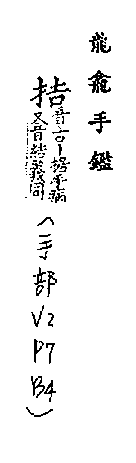 龍龕手鑑
拮音吉丨据手病又音結義同(手部V2P7B4)